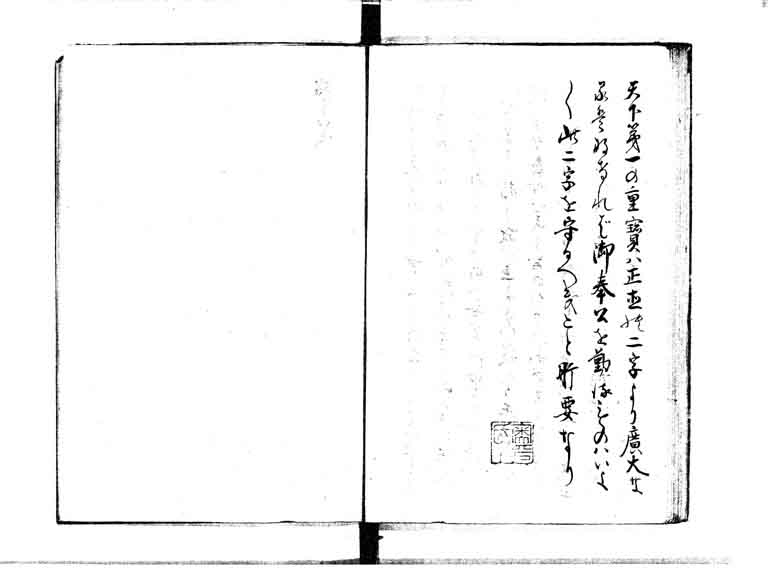 天下第一の重寳ハ正直の二字より廣大な
れば御奉公を勤るものハいよ
〱此二字を守るへきこと肝要なり